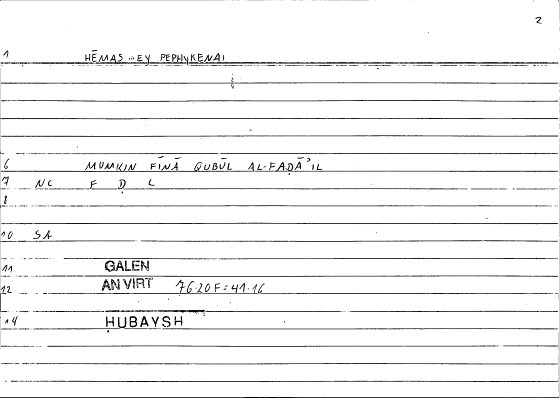 2
1 HĒMAS EY PEPHYKENAI
6 MUMKIN FĪNĀ QUBŪL AL-FAḌĀʾIL
7 NC F Ḍ L
8
10 SA
11 GALEN
12 AN VIRT 76.20 F = 41.16
14 ḤUBAYSH